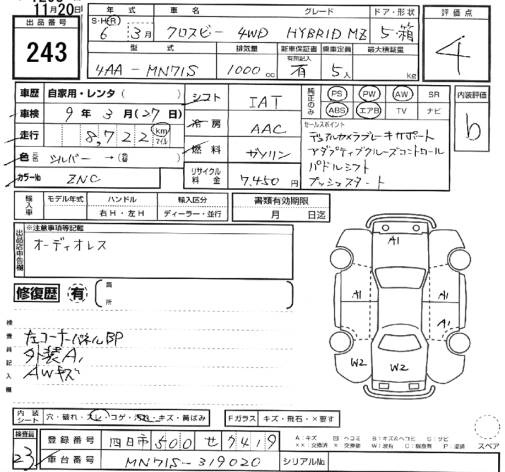 11月20日
出品番号
243
年式 車名 グレード ドア・形状
S・H・R 6年 3月 クロスビー 4WD HYBRID MZ 5・箱
型式 排気量 新車保証書 乗車定員 最大積載量
有効記入
4AA-MN71S 1000cc 有 5人 kg
評価点
4
車歴 自家用・レンタ( )
車検 9年 3月(27日)
走行 8,722 km マイル
色 シルバー →( )
カラーNo ZNC
シフト IAT
冷房 AAC
燃料 ガソリン
リサイクル料金 7,450円
純正のみ
PS PW AW SR
ABS エアB TV ナビ
セールスポイント
デュアルカメラブレーキサポート
アダプティブクルーズコントロール
パドルシフト
プッシュスタート
内装評価
b
輸入車 モデル年式 ハンドル 輸入区分
年 右H・左H ディーラー・並行
書類有効期限
月 日迄
出品店申告欄
※注意事項等記載
オーディオレス
修復歴 有
員
所
検査員記入欄
左コーナーパネルBP
外装A1
AWキズ
A1
A1 A1
W2 W2
内装シート 穴・破れ・スレ・コゲ・汚れ・キズ・黄ばみ
Fガラス キズ・飛石・×要す
A:キズ
スペア
検査員
23
登録番号 四日市 500 せ 7419
車台番号 MN71S-319020
シリアルNo.